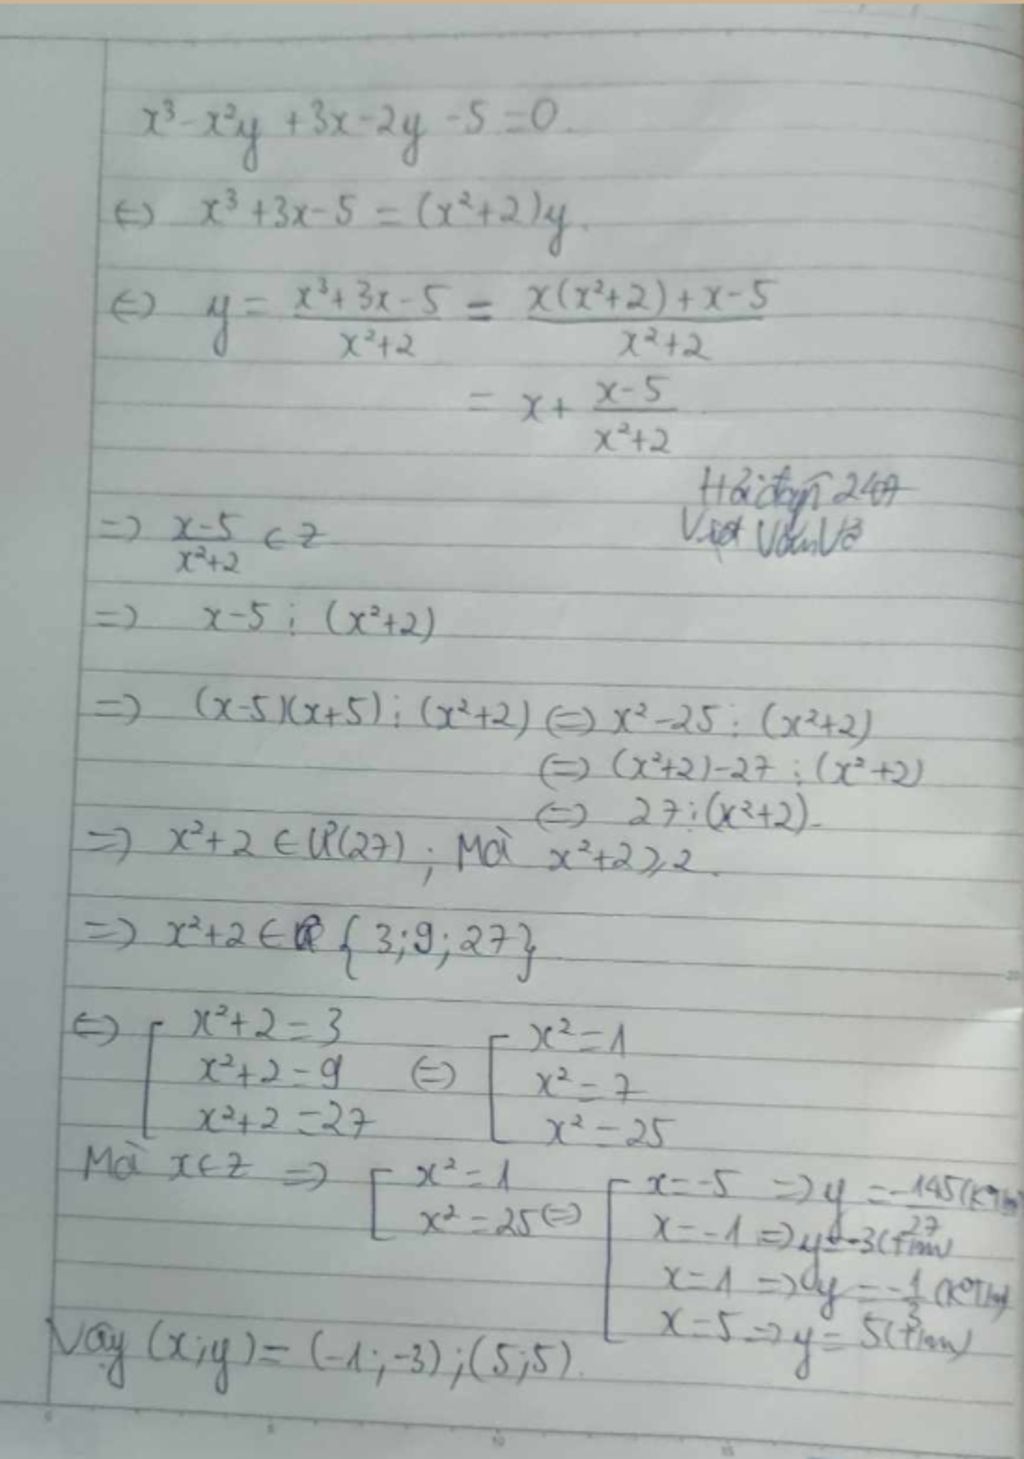 x³ - x²y + 3x - 2y - 5 = 0.
⇔ x³ + 3x - 5 = (x² + 2)y.
⇔ y = (x³ + 3x - 5)/(x² + 2) = (x(x² + 2) + x - 5)/(x² + 2)
= x + (x - 5)/(x² + 2)
⇒ (x - 5)/(x² + 2) ∈ Z
⇒ x - 5 ⋮ (x² + 2)
⇒ (x - 5)(x + 5) ⋮ (x² + 2) ⇔ x² - 25 ⋮ (x² + 2)
⇔ (x² + 2) - 27 ⋮ (x² + 2)
⇔ 27 ⋮ (x² + 2).
⇒ x² + 2 ∈ Ư(27) ; Mà x² + 2 ≥ 2.
⇒ x² + 2 ∈ {3; 9; 27}
⇔ [ x² + 2 = 3 [ x² = 1
x² + 2 = 9 ⇔ x² = 7
x² + 2 = 27 x² = 25
Mà x ∈ Z ⇒ [ x² = 1 [ x = -5 ⇒ y = -145/27
x² = 25 ⇔ x = -1 ⇒ y = -3 (t/m)
x = 1 ⇒ y = -1/3
x = 5 ⇒ y = 5 (t/m)
Vậy (x; y) = (-1; -3) ; (5; 5).